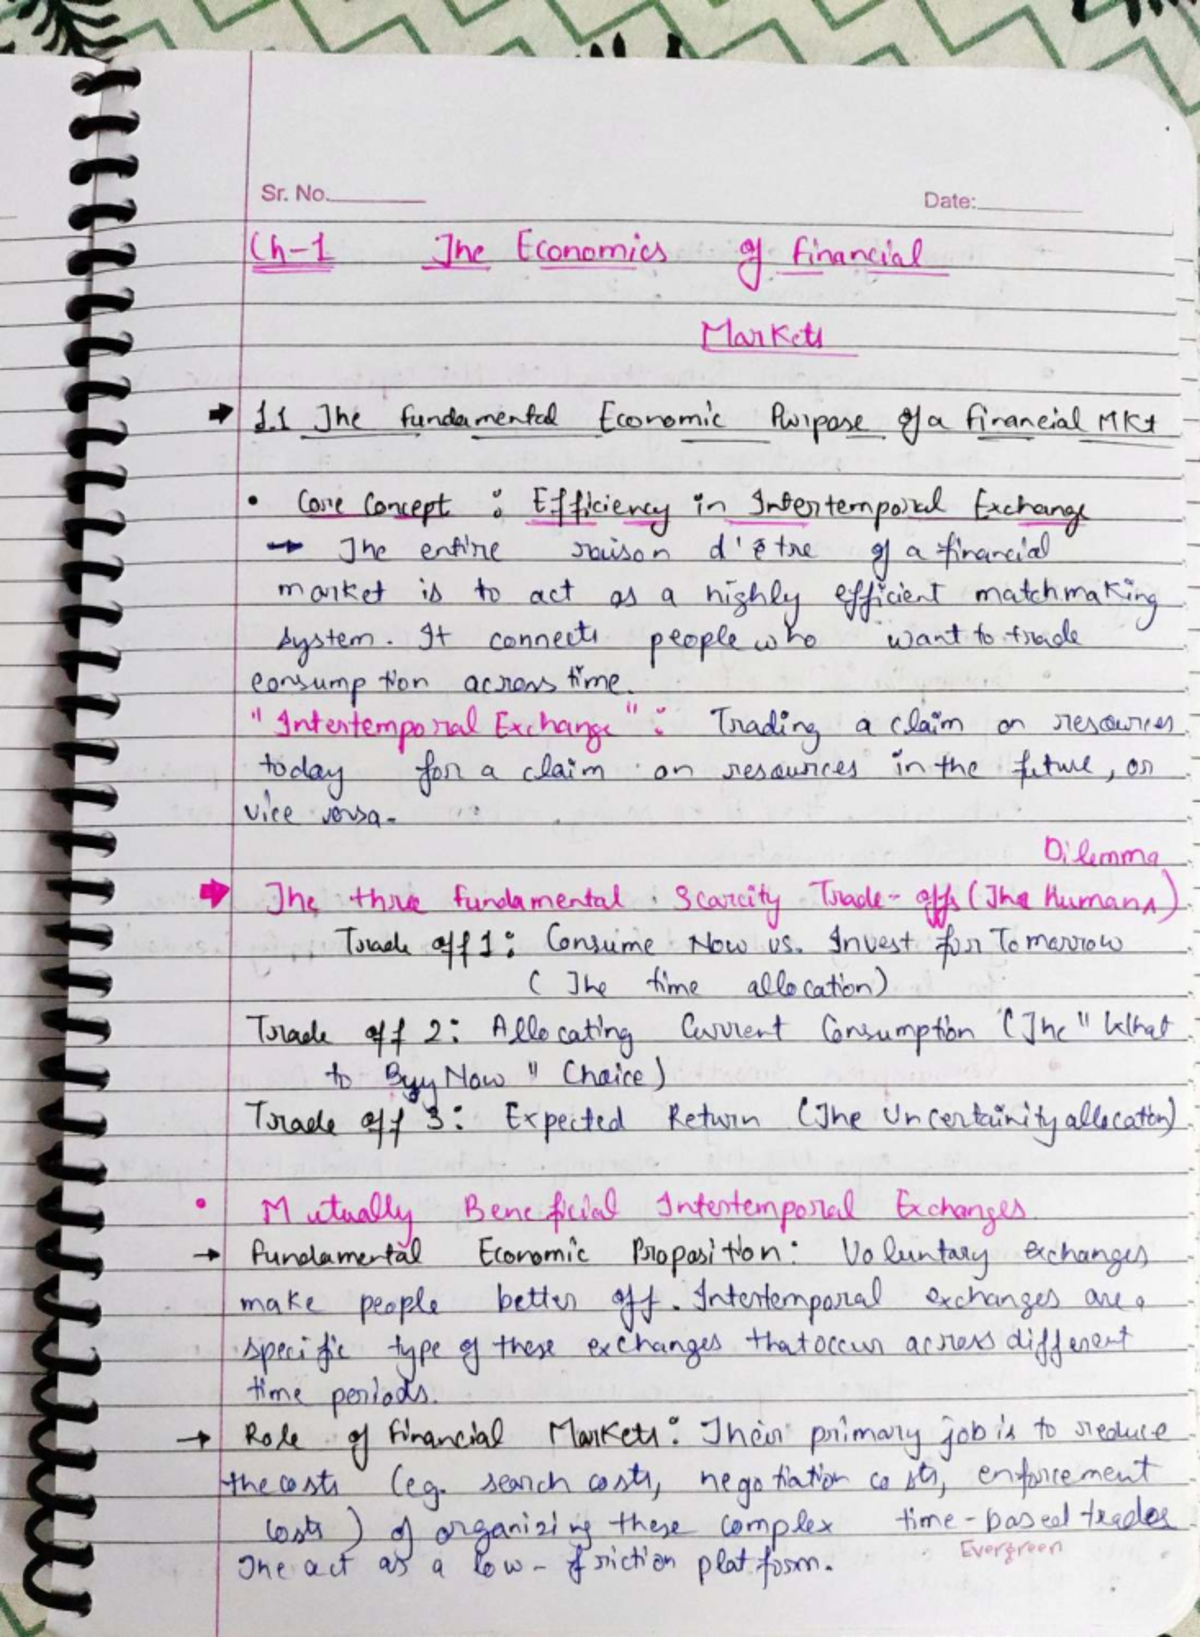 Sr. No.
Date:
Ch-1 The Economics of Financial
Markets
→ 1.1 The Fundamental Economic Purpose of a Financial MKt
• Core Concept : Efficiency in Intertemporal Exchange
→ The entire raison d'être of a financial
market is to act as a highly efficient matchmaking
system. It connects people who want to trade
consumption across time.
"Intertemporal Exchange" : Trading a claim on resources
today for a claim on resources in the future, or
vice versa.
Dilemma
→ The three fundamental Scarcity Trade-offs (The Human^)
Trade off 1: Consume Now vs. Invest for Tomorrow
(The time allocation)
Trade off 2: Allocating Current Consumption (The "What
to Buy Now" Choice)
Trade off 3: Expected Return (The Uncertainity allocation)
• Mutually Beneficial Intertemporal Exchanges
→ Fundamental Economic Proposition: Voluntary exchanges
make people better off. Intertemporal exchanges are a
specific type of these exchanges that occur across different
time periods.
→ Role of Financial Markets: Their primary job is to reduce
the costs (eg. search costs, negotiation costs, enforcement
costs) of organizing these complex time-based trades
The act as a low-friction platform.
Evergreen